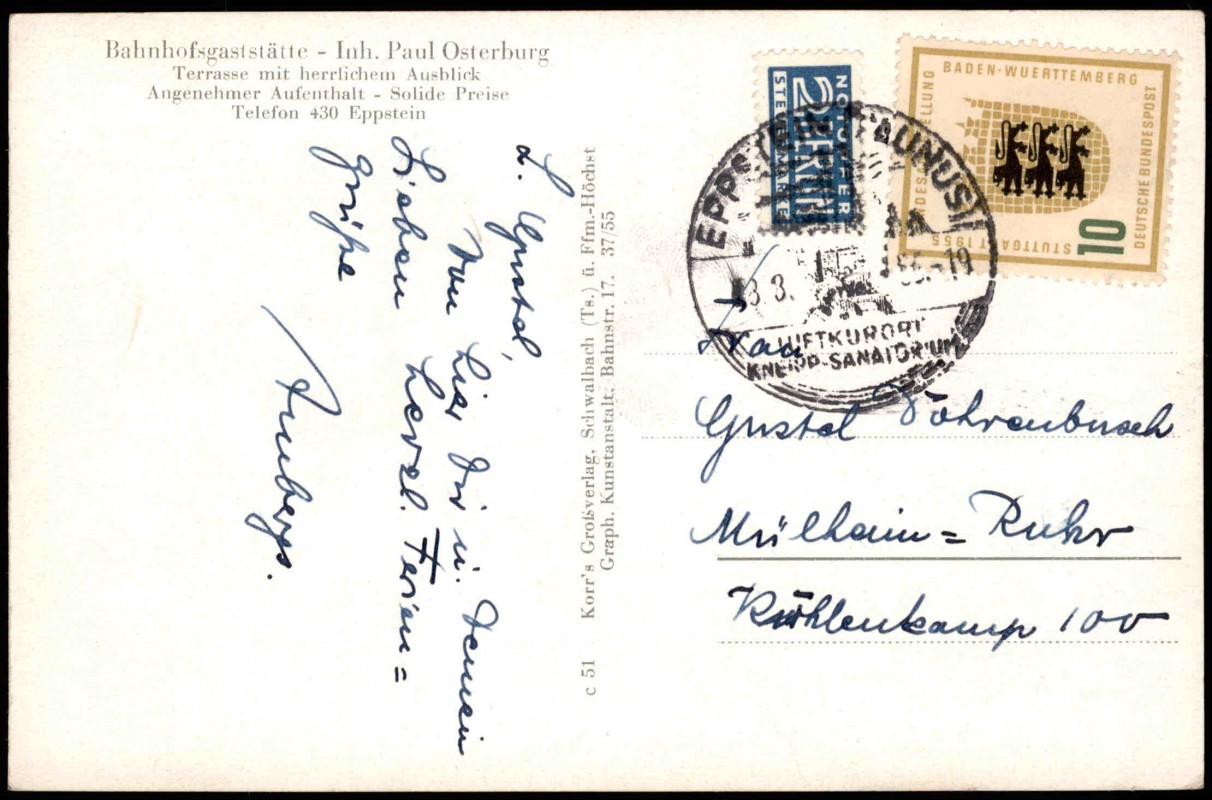 Bahnhofsgaststätte - Inh. Paul Osterburg
Terrasse mit herrlichem Ausblick
Angenehmer Aufenthalt - Solide Preise
Telefon 430 Eppstein
L. Gustel,
Von hier Dir u. Deinen
Lieben herzl. Ferien=
grüße
c 51 Korr's Großverlag, Schwalbach (Ts.) ü. Ffm.-Höchst
Graph. Kunstanstalt, Bahnstr. 17. 37/55
NOTOPFER
2 BERLIN
STEUERMARKE
BADEN-WUERTTEMBERG
LANDESAUSSTELLUNG
STUTTGART 1955
DEUTSCHE BUNDESPOST
10
EPPSTEIN (TAUNUS)
LUFTKURORT
KNEIPP-SANATORIUM
Frau
Gustel Vohrenbusch
Mülheim=Ruhr
Kühlenkamp 100